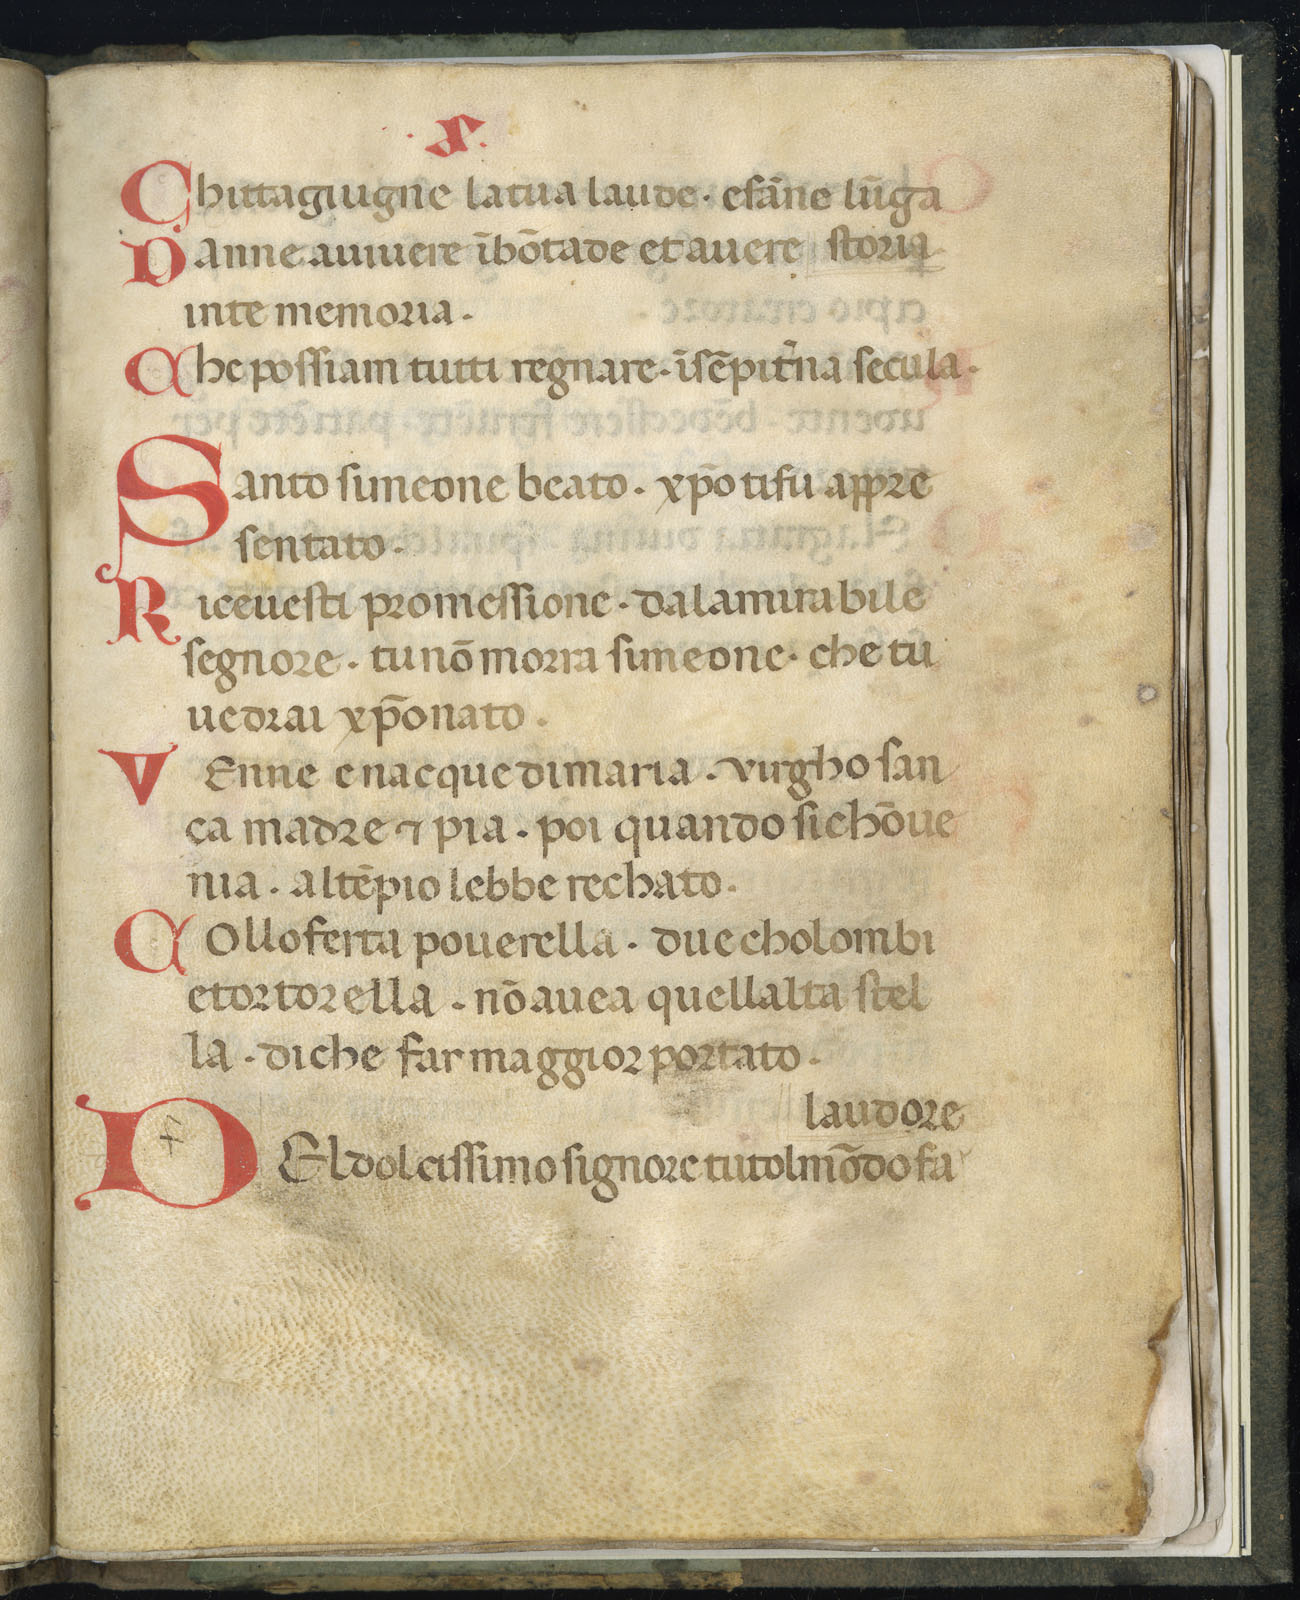 ·x·
Chittagiugne latua laude · esāne lūga
Danne auiuere ībōtade et auere storia
inte memoria ·
Che possiam tutti rēgnare · īsēpit̄na secula ·
Santo simeone beato · xp̄o tifu appre
sentato ·
Riceuesti promessione · dalamirabile
segnore · tu nō morra simeone · che tu
uedrai xp̄o nato ·
VEnne e nacque di maria · virgho san
ca madre ⁊ pia · poi quando si chōue
nia · al tēpio lebbe rechato ·
COlloferta pouerella · due cholombi
e tortorella · nō auea quellalta stel
la · di che far maggior portato ·
laudore
DEl dolcissimo signore tutol mōdo fa